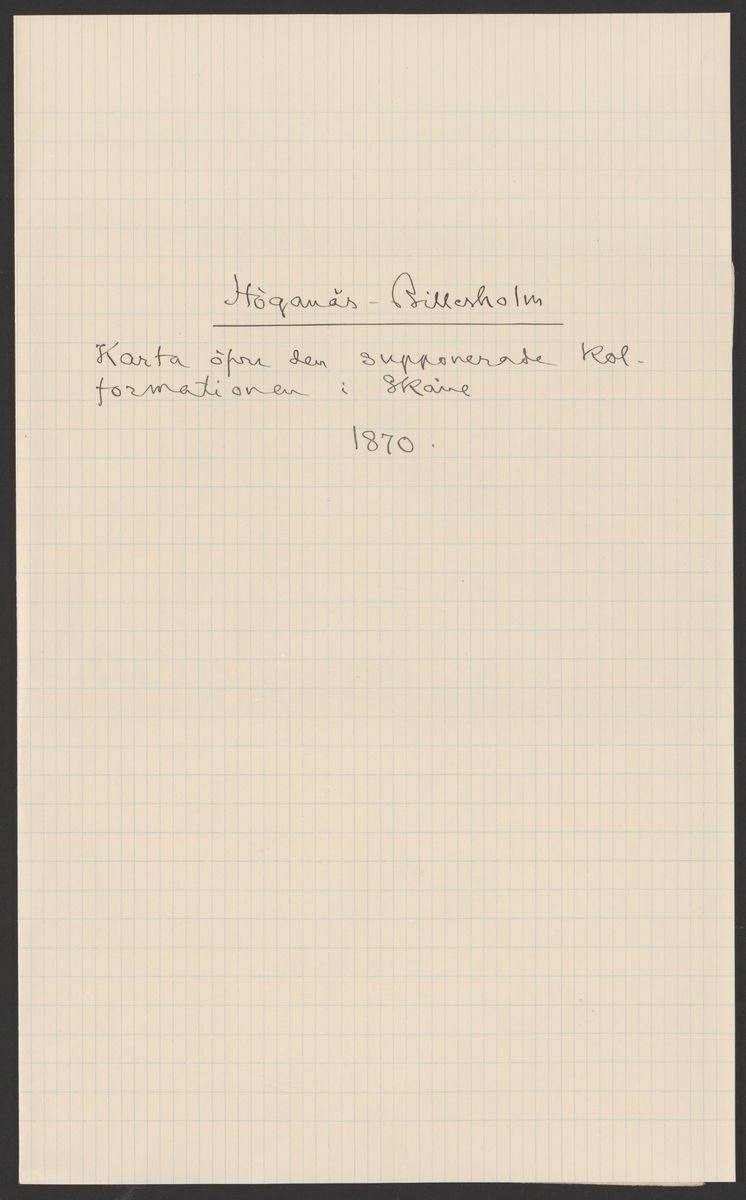 Höganäs - Billesholm
Karta öfver den supponerade Kol-
formationen i Skåne
1870.